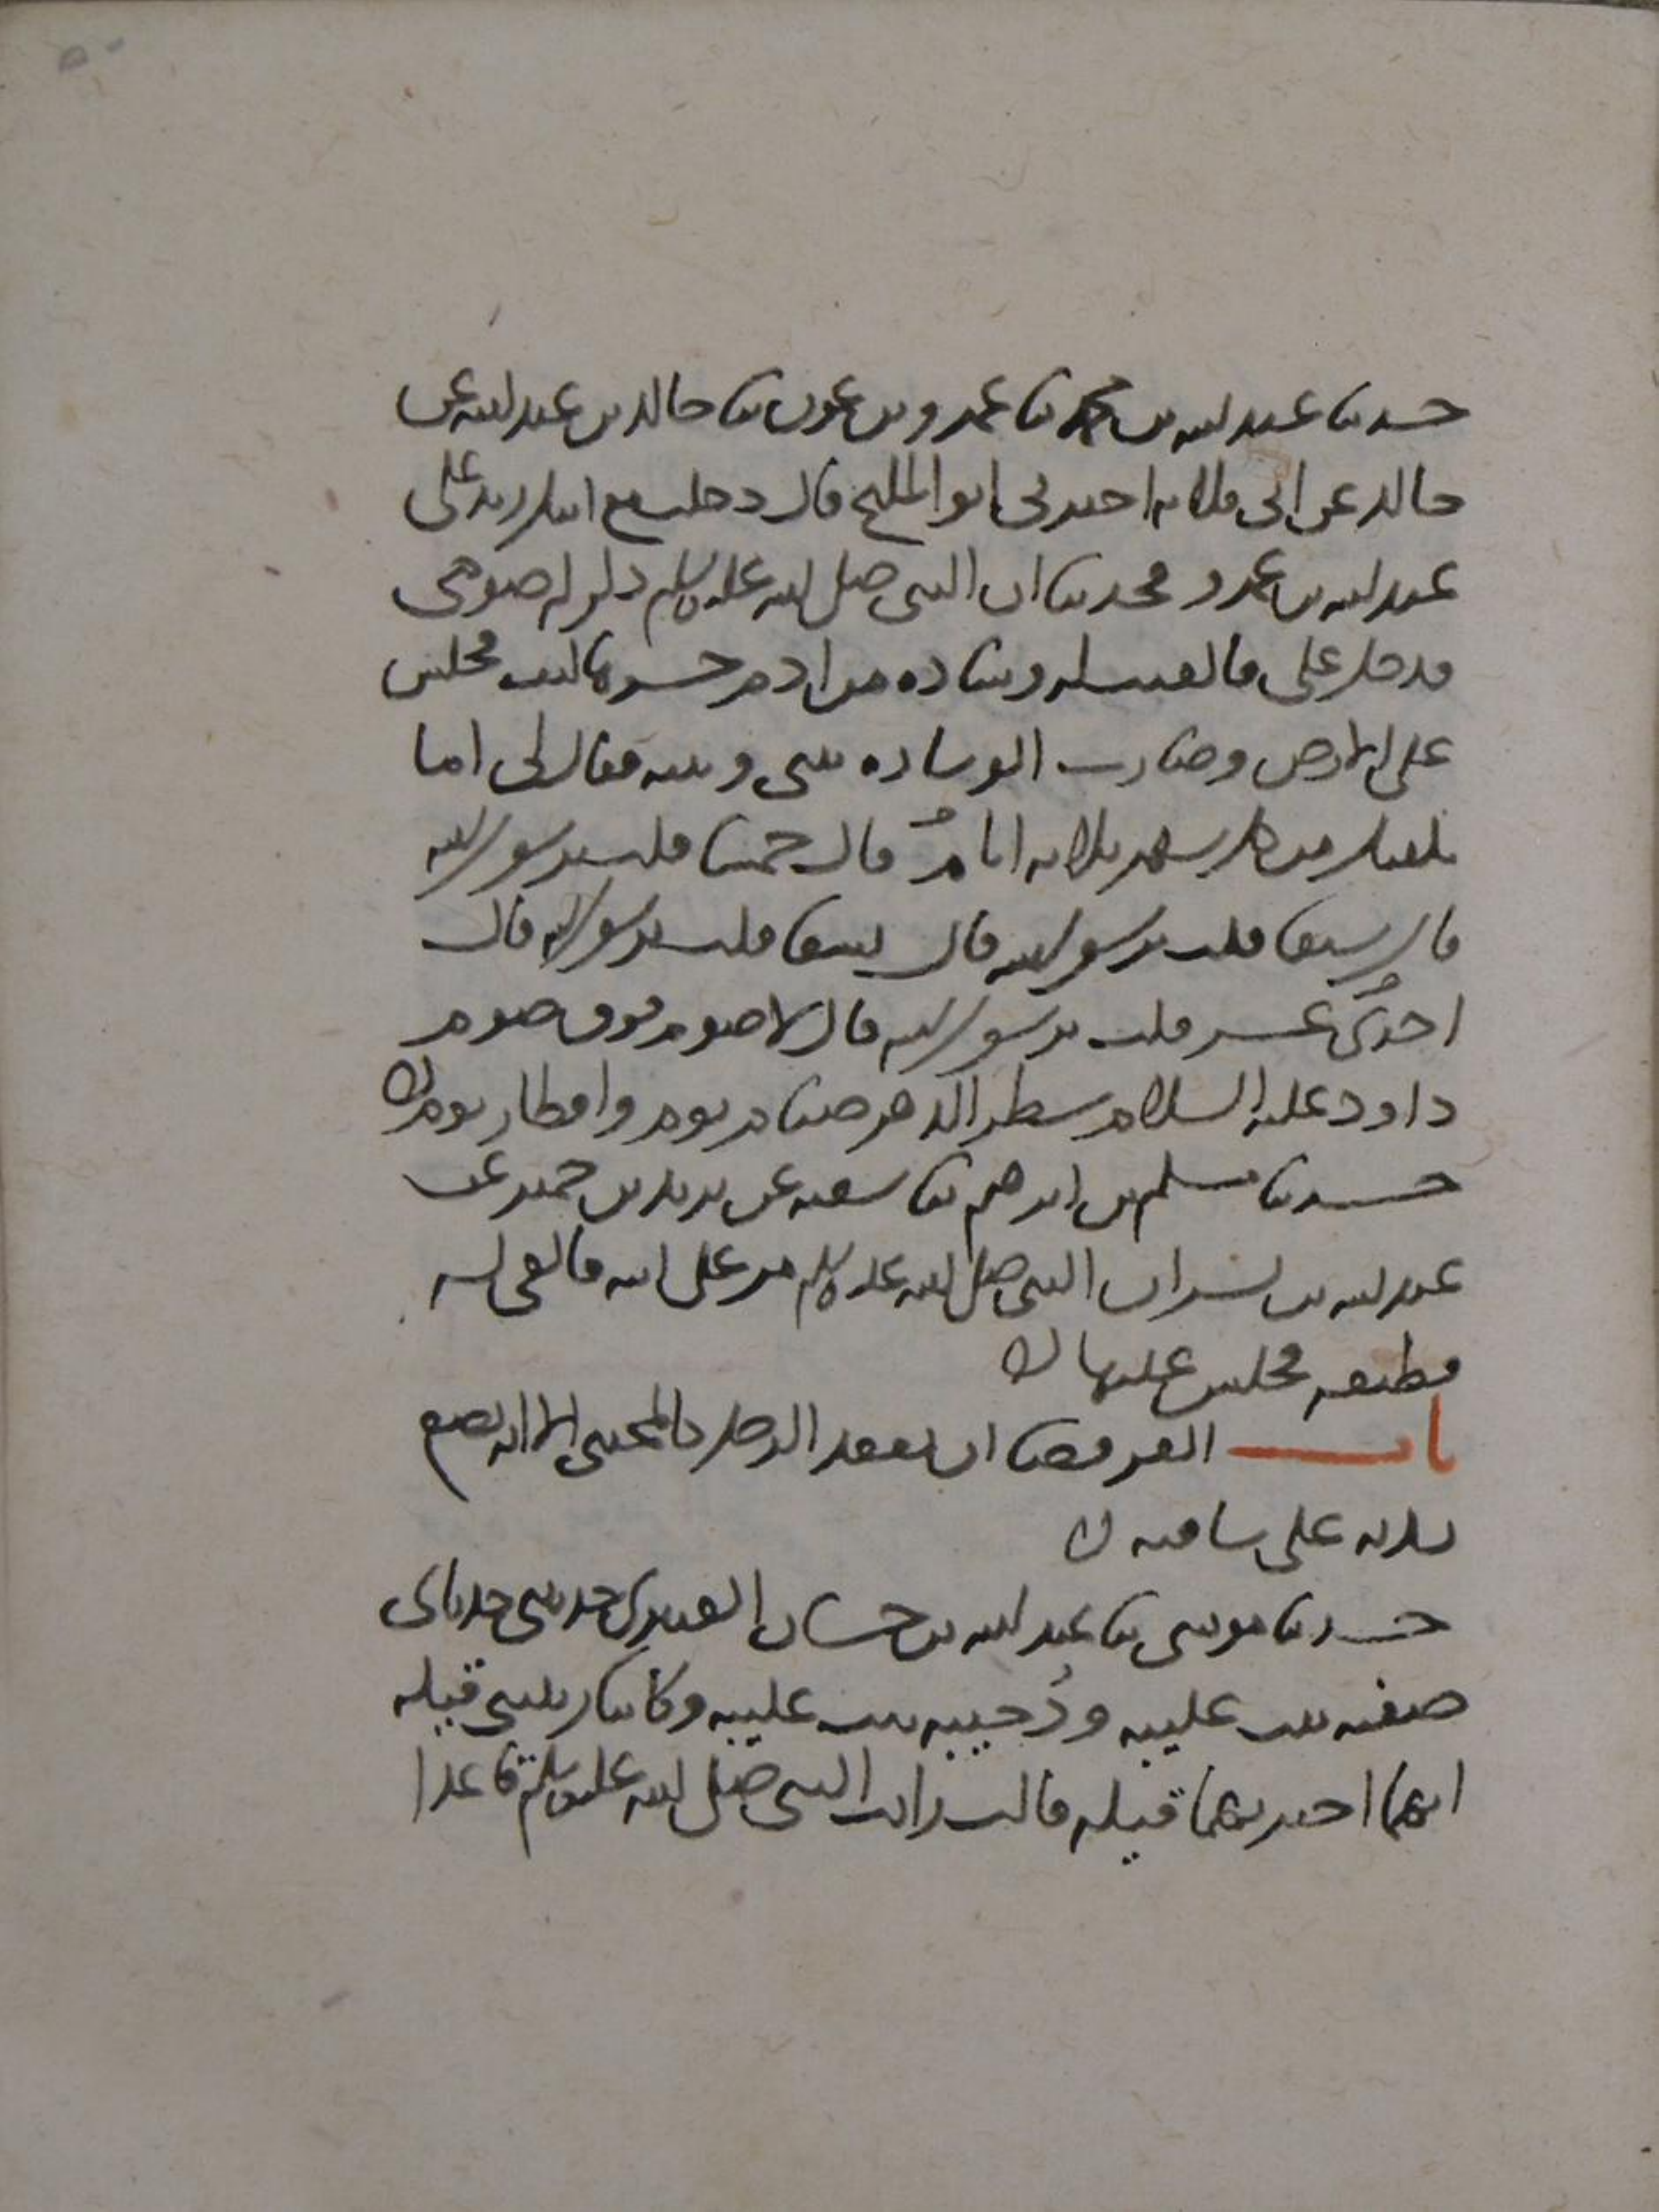 حدثنا عبد الله بن محمد ثنا عمرو بن عون ثنا خالد بن عبد الله عن
خالد عن ابى قلابه اخبرنى ابو المليح قال دخلت مع ابيك زيد على
عبد الله بن عمرو فحدثنا ان النبى صلى الله عليه وسلم ذكر له صومى
فدخل على فالقيت له وسادة من ادم حشوها ليف فجلس
على الارض وصارت الوساده بينى وبينه فقال لى اما
يكفيك من كل شهر ثلاثه ايام قال خمسا قلت يرسول الله
قال سبعا قلت يرسول الله قال تسعا قلت يرسول الله قال
احدى عشر قلت يرسول الله قال لا صوم فوق صوم
داود عليه السلام شطر الدهر صيام يوم وافطار يوم
حدثنا مسلم بن ابرهيم ثنا شعبه عن يزيد بن خمير عن
عبد الله بن بسر ان النبى صلى الله عليه وسلم مر على ابيه فالقى له
قطيفه فجلس عليها
باب القرفصا ان يقعد الرجل كالمحتبى الا انه يضع
يديه على ساقيه
حدثنا موسى ثنا عبد الله بن حسان العنبرى حدثنى جدتاى
صفيه بنت عليبه ودُحيبه بنت عليبه وكانتا ربيبتى قيله
انهما اخبرتهما قيله قالت رايت النبى صلى الله عليه وسلم قاعدا